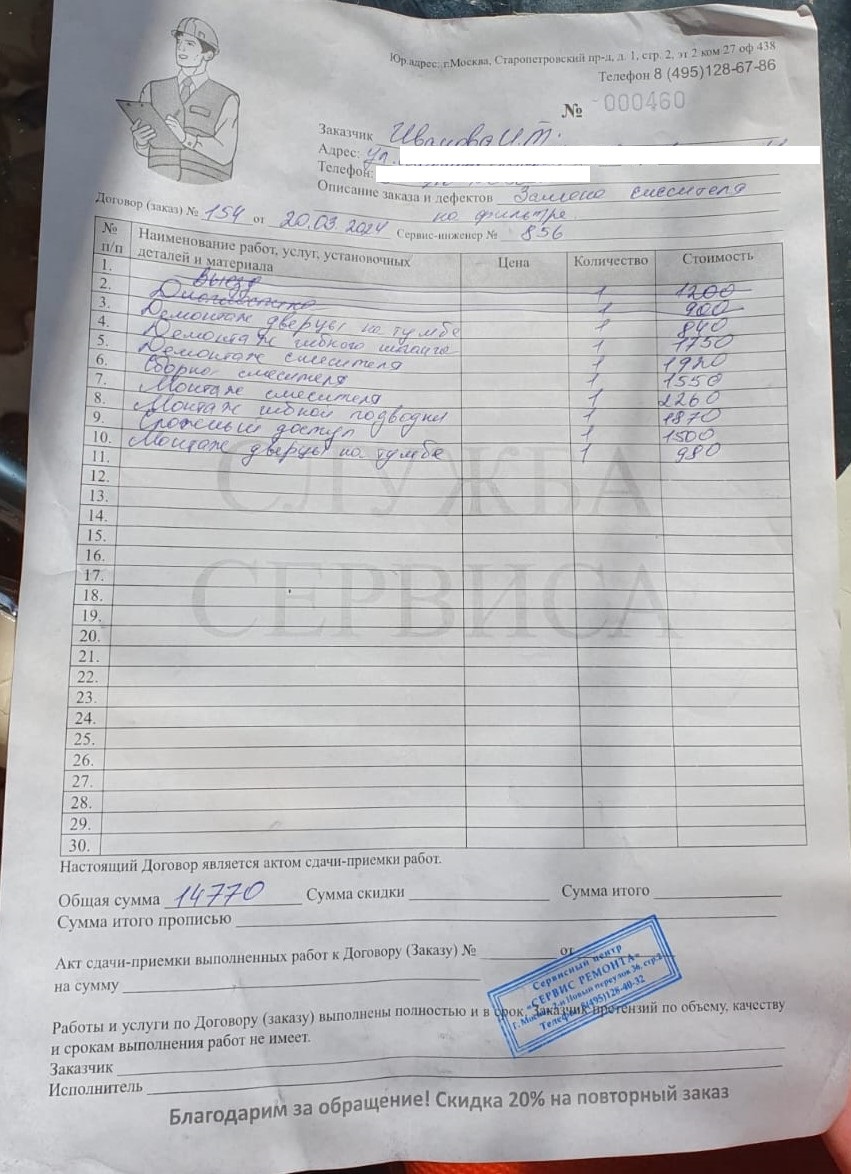 Юр.адрес: г.Москва, Старопетровский пр-д, д. 1, стр. 2, эт 2 ком 27 оф 438
Телефон 8 (495)128-67-86
№ 000460
Заказчик Иванова И.Т.
Адрес: ул.
Телефон:
Описание заказа и дефектов Замена смесителя
на фильтре
Договор (заказ) № 154 от 20.03.2024 Сервис-инженер № 856
№ п/п Наименование работ, услуг, установочных деталей и материала Цена Количество Стоимость
1. Выезд 1 1200
2. Диагностика 1 900
3. Демонтаж дверцы на тумбе 1 840
4. Демонтаж гибкого шланга 1 1750
5. Демонтаж смесителя 1 1920
6. Сборка смесителя 1 1550
7. Монтаж смесителя 1 2260
8. Монтаж гибкой подводки 1 1870
9. Сложный доступ 1 1500
10. Монтаж дверцы на тумбе 1 980
11.
12.
13.
14.
15.
16.
17.
18.
19.
20.
21.
22.
23.
24.
25.
26.
27.
28.
29.
30.
СЛУЖБА
СЕРВИСА
Настоящий Договор является актом сдачи-приемки работ.
Общая сумма 14770 Сумма скидки Сумма итого
Сумма итого прописью
Акт сдачи-приемки выполненных работ к Договору (Заказу) № от
на сумму
Сервисный центр
"СЕРВИС РЕМОНТА"
Г. Москва, 2-й Новый переулок 36, стр.
Телефон 8(495)128-40-32
Работы и услуги по Договору (заказу) выполнены полностью и в срок. Заказчик претензий по объему, качеству
и срокам выполнения работ не имеет.
Заказчик
Исполнитель
Благодарим за обращение! Скидка 20% на повторный заказ